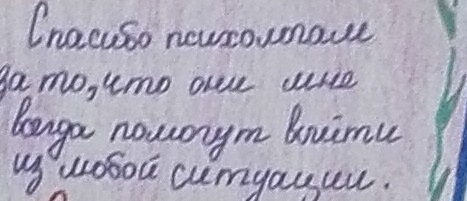 Спасибо психологам
за то, что они мне
всегда помогут выйти
из любой ситуации.